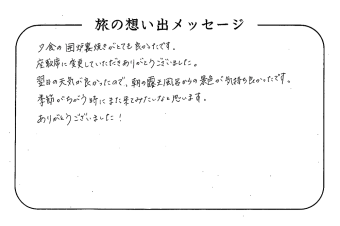 旅の想い出メッセージ
夕食の囲炉裏焼きがとても良かったです。
座敷席に変更していただきありがとうございました。
翌日の天気が良かったので、朝の露天風呂からの景色が気持ち良かったです。
季節がちがう時にまた来てみたいなと思います。
ありがとうございました！